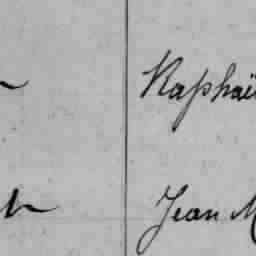 Raphaë
Jean M